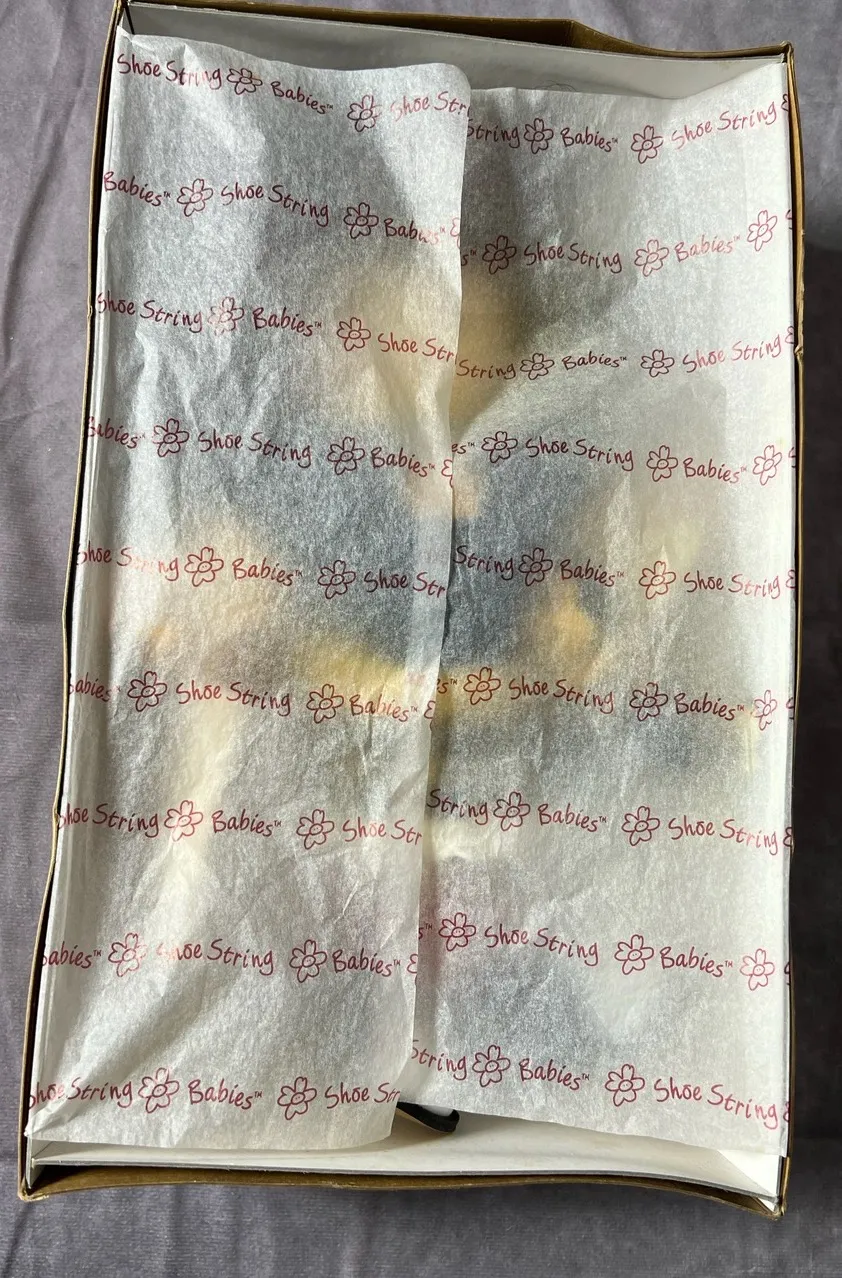 Shoe String Babies™ Shoe Str
Babies™ Shoe String Babies
Shoe String Babies™ Shoe Str
Babies™ Shoe String Babies™
Shoe String Babies™ Shoe Str
abies Shoe String Babies™
hoe String Babies™ Shoe Str
abies™ Shoe String Babies™
hoe String Babies™ Shoe Str
String Babies™ Shoe String
s™ Shoe String Babies™
String Babies™ Shoe String
es™ Shoe String Babies™
String Babies™ Shoe String
s™ Shoe String Babies™
String Babies™ Shoe String
s™ Shoe String Babies™
String Babies™ Shoe String